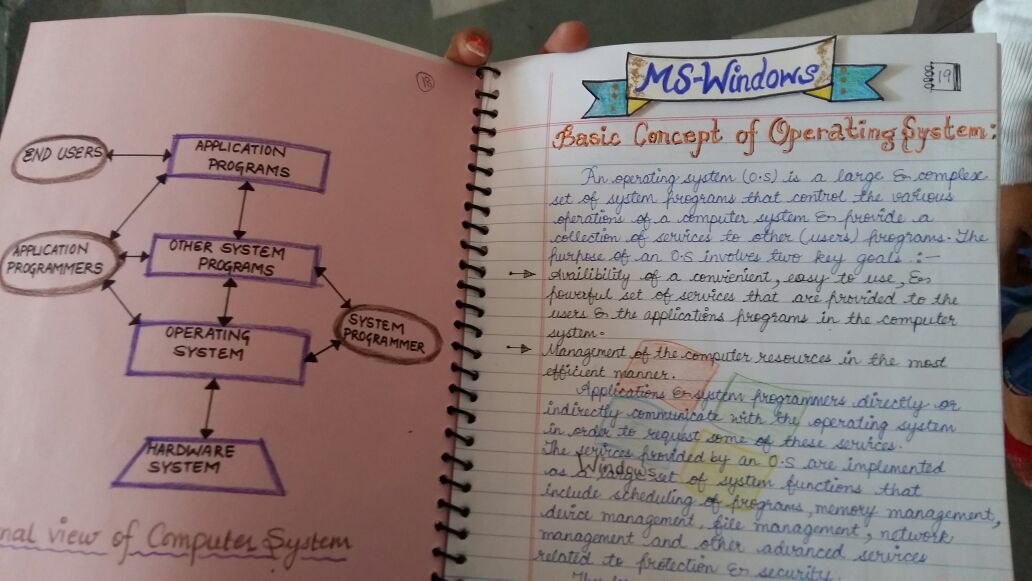 18
END USERS
APPLICATION
PROGRAMS
APPLICATION
PROGRAMMERS
OTHER SYSTEM
PROGRAMS
SYSTEM
PROGRAMMER
OPERATING
SYSTEM
HARDWARE
SYSTEM
view of Computer System
MS-Windows
19
Basic Concept of Operating System:
An operating system (O.S) is a large & complex
set of system programs that control the various
operations of a computer system & provide a
collection of services to other (users) programs. The
purpose of an O.S involves two key goals :-
→ Availibility of a convienient, easy to use, &
powerful set of services that are provided to the
users & the applications programs in the computer
system.
→ Management of the computer resources in the most
efficient manner.
Applications & system programmers directly or
indirectly communicate with the operating system
in order to request some of these services.
The services provided by an O.S are implemented
Windows
as a large set of system functions that
include scheduling of programs, memory management,
device management, file management, network
management and other advanced services
related to protection & security.